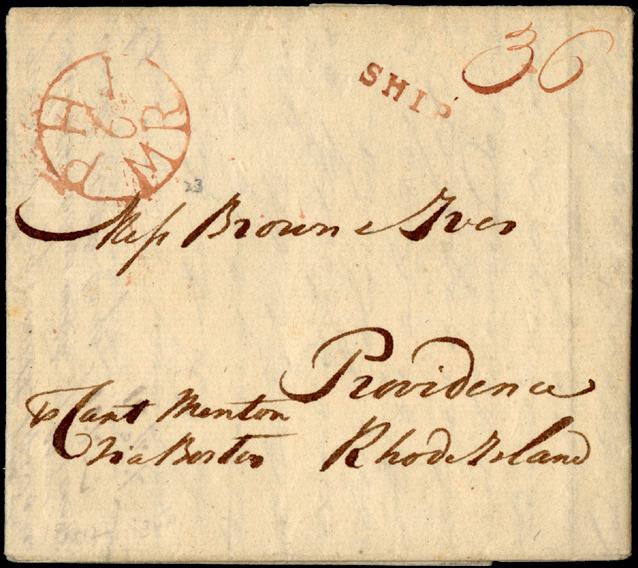 PHI
6 MR
SHIP
36
23
Mess Brown & Ives
Providence
Rhode Island
Capt Menton
Via Boston